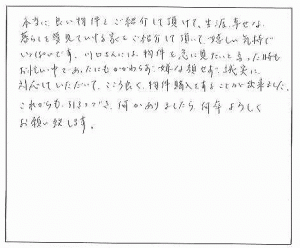 本当に良い物件をご紹介して頂けて、生涯幸せな
暮らしを夢見ていける家をご紹介して頂いて嬉しい気持で
いっぱいです。川口さんには、物件を急に見たいと言った時も
お忙しい中であったにもかかわらず、嫌な顔せず、誠実に
対応していただいて、こころ良く、物件購入をすることが出来ました。
これからも、引きつづき、何かありましたら、何卒よろしく
お願い致します。